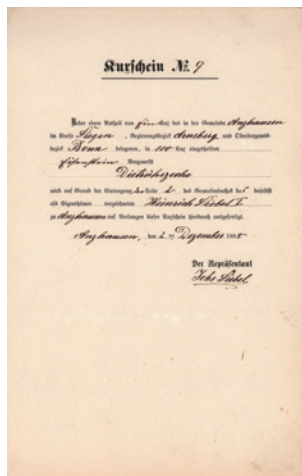 Kuxschein № 9
Ueber einen Antheil von Ein Kux des in der Gemeinde Anzhausen
im Kreise Siegen, Regierungsbezirk Arnsberg und Oberbergamts-
bezirk Bonn belegenen, in 100 Kux eingetheilten
Eisenstein Bergwerks
wird auf Grund der Eintragung Seite 2 des Gewerkenbuchs des daselbst
als Eigenthümer verzeichneten Heinrich Siebel I
zu Anzhausen auf Verlangen dieser Kuxschein hierdurch ausgefertigt.
Anzhausen, den 2 ten Dezember 188
Der Repräsentant
Johs Siebel